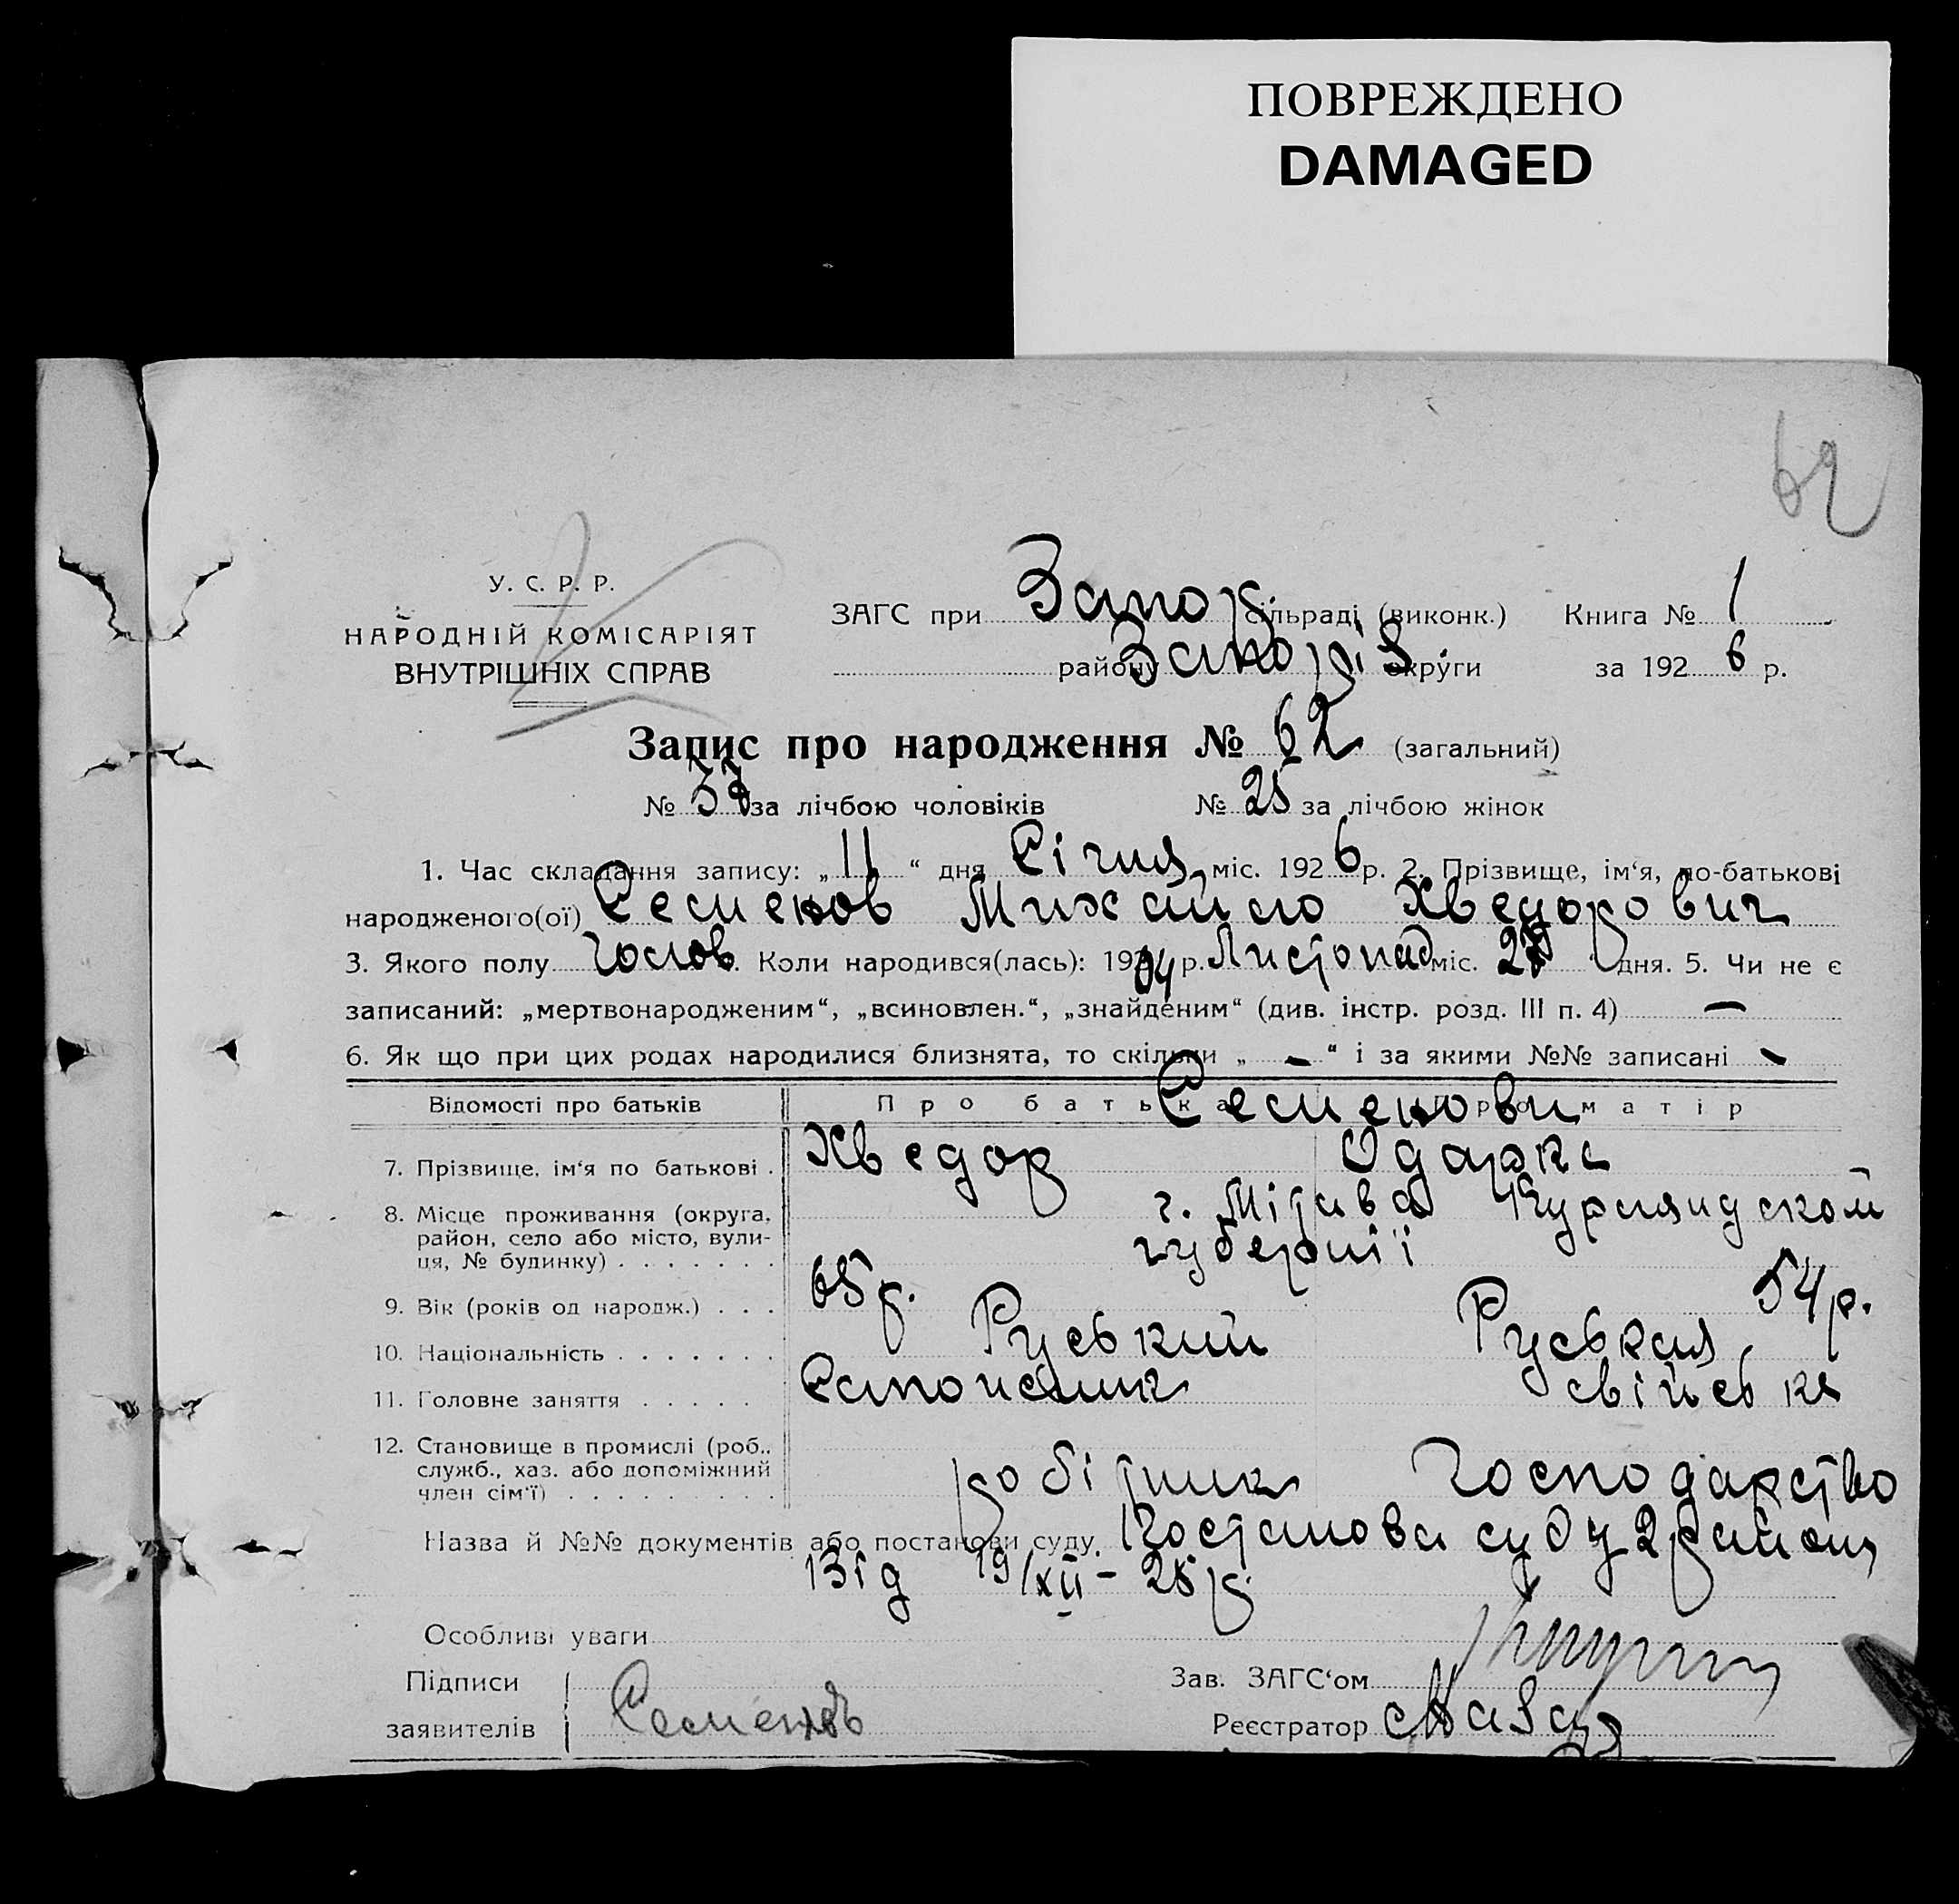 ПОВРЕЖДЕНО
DAMAGED
62
У. С. Р. Р.
НАРОДНІЙ КОМІСАРІЯТ
ВНУТРІШНІХ СПРАВ
ЗАГС при Запор. сільраді (виконк.) Книга № 1
району Запоріз округи за 1926 р.
Запис про народження № 62 (загальний)
№ 37 за лічбою чоловіків № 25 за лічбою жінок
1. Час складання запису: „11“ дня Січня міс. 1926 р. 2. Прізвище, ім‘я, по-батькові
народженого(ої) Семенов Михайло Хведорович
3. Якого полу чолов. Коли народився(лась): 1904 р. Листопад міс. дня. 5. Чи не є
записаний: „мертвонародженим“, „всиновлен.“, „знайденим“ (див. інстр. розд. III п. 4) —
6. Як що при цих родах народилися близнята, то скільки „ – “ і за якими №№ записані –
Відомості про батьків Про батька Про матір
Семенови
7. Прізвище, ім‘я по батькові . Хведор Одарка
8. Місце проживання (округа, район, село або місто, вулиця, № будинку) . . . . . . . г. Мітава Курляндской
губернії
9. Вік (років од народж.) . . . 65 р. 54 р.
10. Національність . . . . . . . Руський Руськая
11. Головне заняття . . . . . Сапожник свійське
12. Становище в промислі (роб., служб., хаз. або допоміжний член сім‘ї) . . . . . . . . . робітник господарство
Назва й №№ документів або постанови суду. Постанова суду 2 района
від 19/XII – 25 р.
Особливі уваги
Підписи
заявителів Семеновъ
Зав. ЗАГС‘ом
Реєстратор